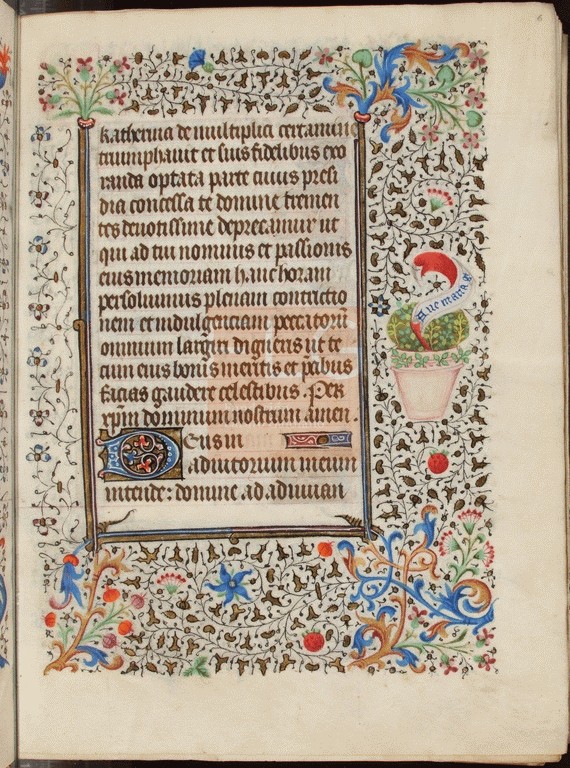 katherina de multiplici certamine
triumphauit et suis fidelibus exo
randa optata parte cuius presi
dia concessa te domine tremen
tes deuotissime deprecamur ut
qui ad tui nominis et passionis
eius memoriam hanc horam
persoluimus plenam contrictio
nem et indulgenciam peccatorũ
omnium largiri digneris ut te
cum eius bonis meritis et p̃cibus
facias gaudere celestibus. Per
xp̃m dominum nostrum amen.
Deus in
adiutorium meum
intende: domine ad adiuuan
Aue maria g̃
6